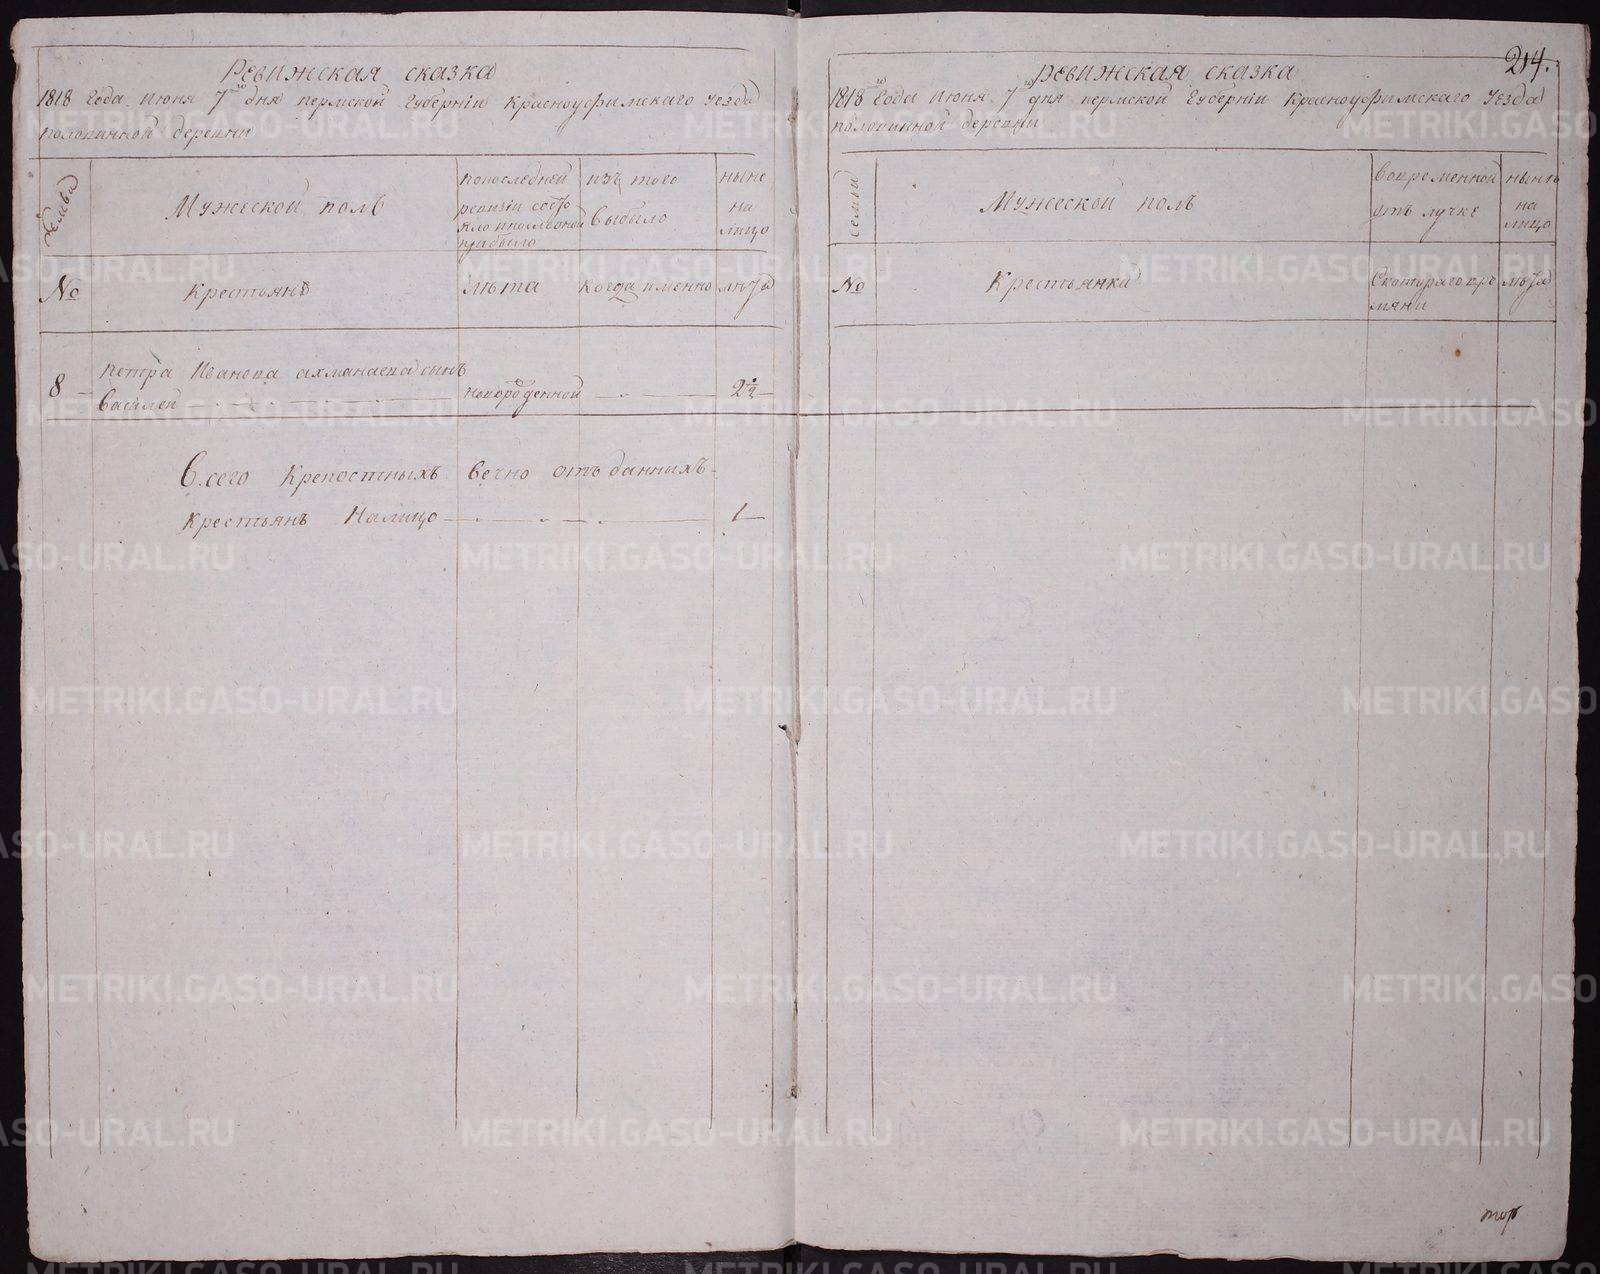 Ревижская сказка
1818 года июня 7го дня пермской губерніи красноуфимскаго уезда
половинной деревни
семьи
Мужеской полъ
попоследней
ревизіи состо
яло ипоследной
прибыло
изъ того
выбыло
ныне
на
лицо
№
крестьянѣ
лѣта
когда именно
лѣта
8
петра Иванова ахманаева сынъ
василей
новорожденной
2 1/2
Всего крепостныхъ вечно отъ данныхъ
крестьянъ Налицо
1
214.
ревижская сказка
1818го года июня 7го дня пермской губерніи красноуфимскаго уезда
половинной деревни
семьи
Мужеской полъ
вовременной
отъ лучке
нынѣ
на
лицо
№
Крестьянки
Скотораго вре
мяни
лѣта
METRIKI.GASO-URAL.RU